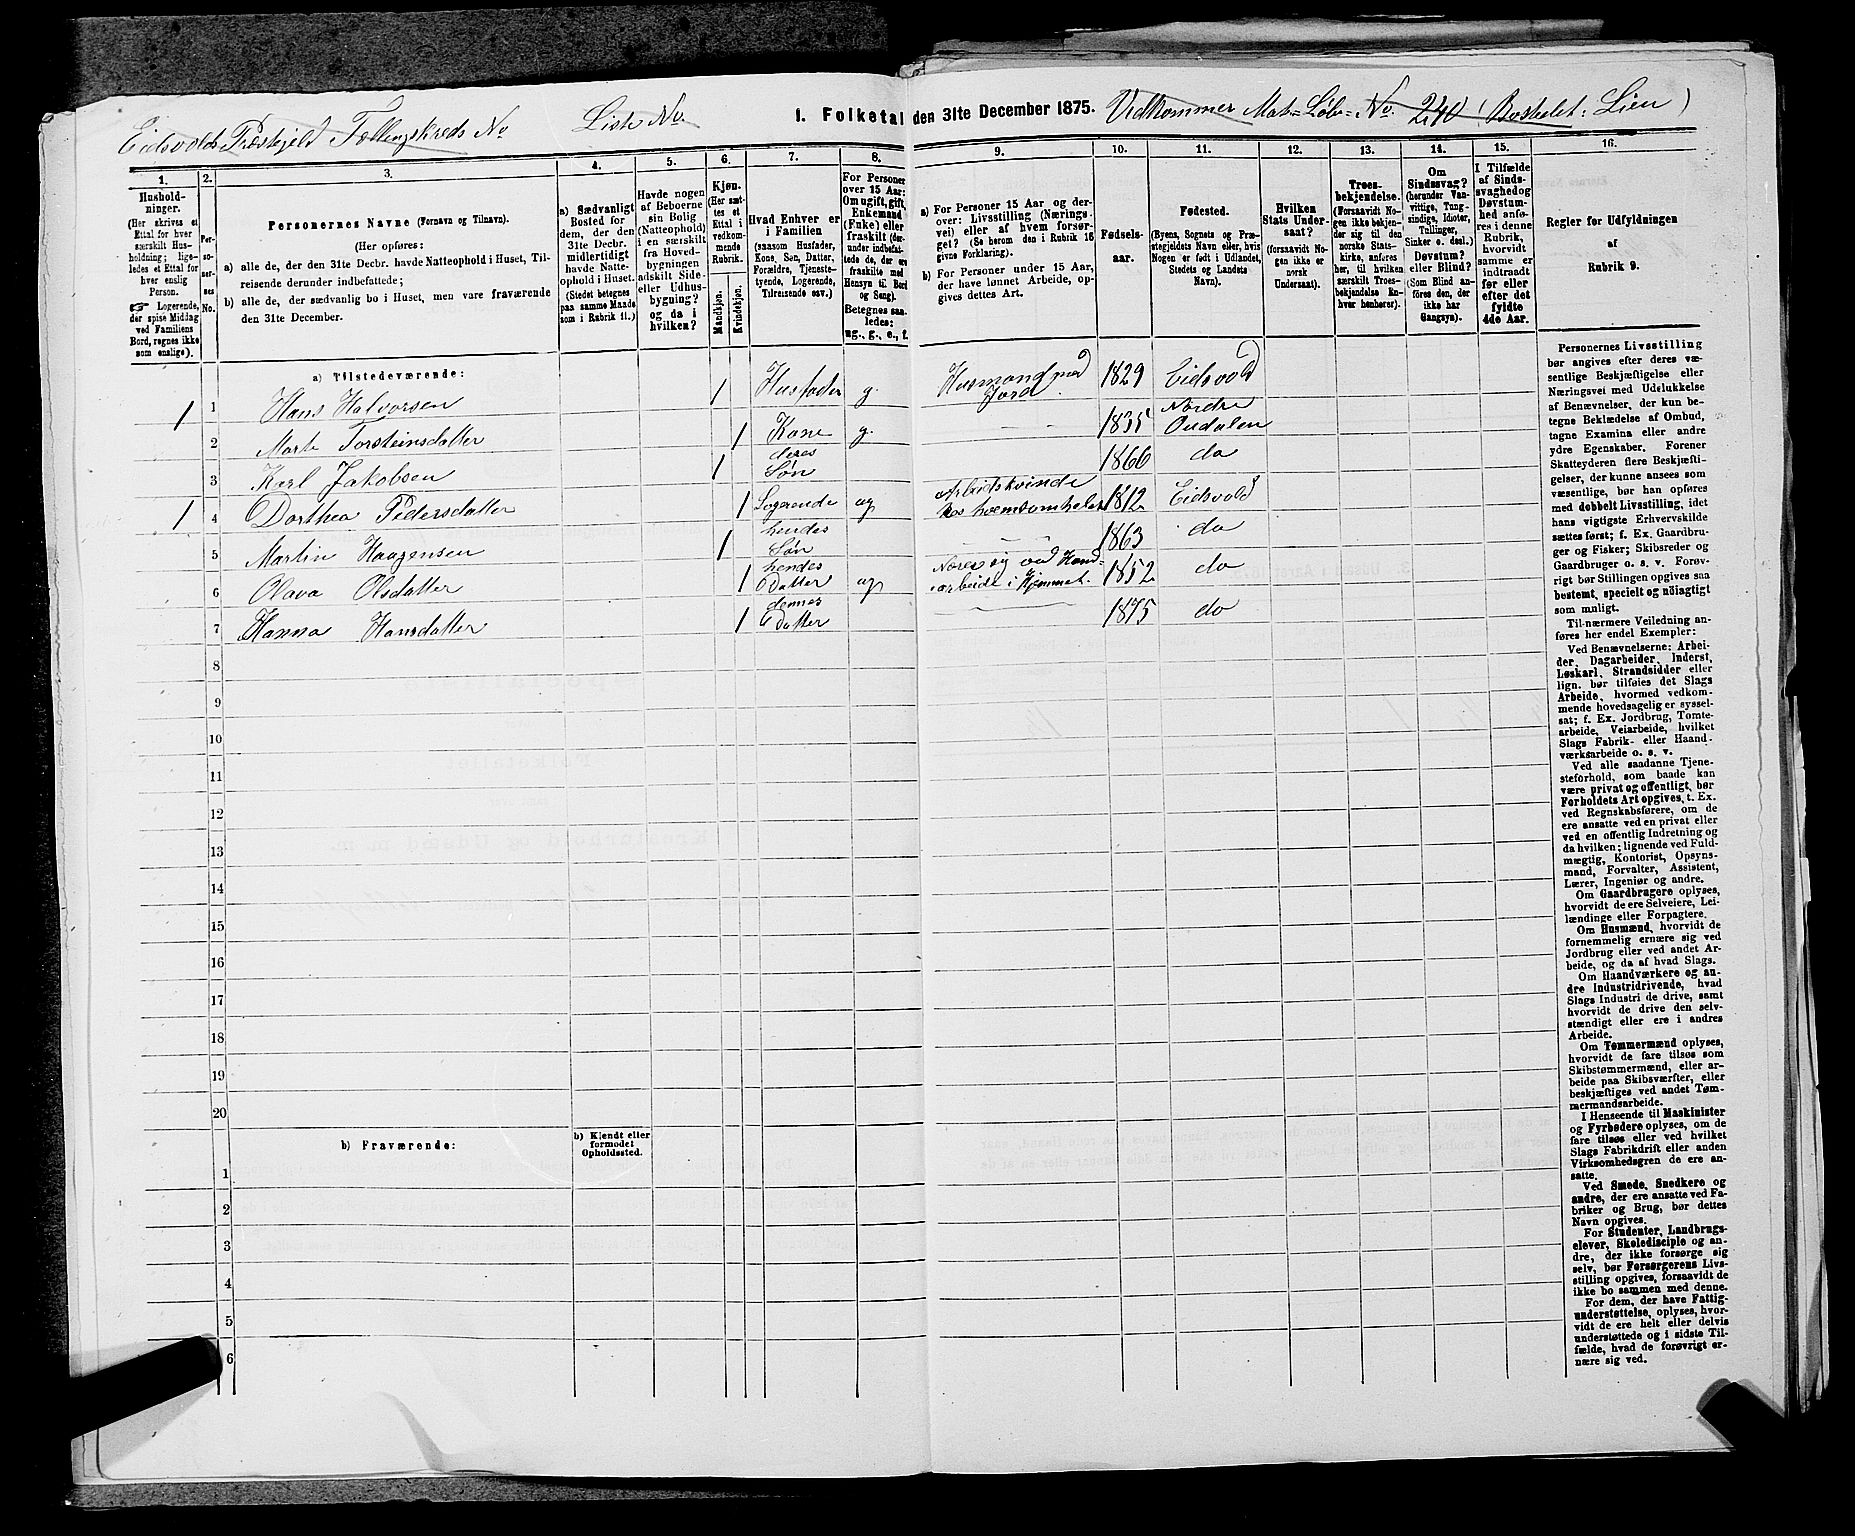 Eidsvolds Præstegjeld Tællingskreds No Liste No. I. Folketal den 31te December 1875. Vedkommer Mat=Løb=No. 240 (Bostedet: Lien)
1. 2. 3. 4. 5. 6. 7. 8. 9. 10. 11. 12. 13. 14. 15. 16.
Hushold-
ninger.
(Her skrives et
Ettal for hver
særskilt Hus-
holdning; lige-
ledes et Ettal for
hver enslig
Person.
☞ Logerende,
der spise Middag
ved Familiens
Bord, regnes ikke
som enslige).
Per-
so-
ner-
nes
No.
Personernes Navne (Fornavn og Tilnavn).
(Her opføres:
a) alle de, der den 31te Decbr. havde Natteophold i Huset, Til-
reisende derunder indbefattede;
b) alle de, der sædvanlig bo i Huset, men vare fraværende
den 31te December.
a) Sædvanligt
Bosted for
dem, der den
31te Decbr.
midlertidigt
havde Natte-
ophold i Huset.
(Stedet betegnes
paa samme Maade
som i Rubrik 11.)
Havde nogen
af Beboerne
sin Bolig
(Natteophold)
i en særskilt
fra Hoved-
bygningen
adskilt Side-
eller Udhus-
bygning?
og da i
hvilken?
Kjøn.
(Her sæt-
tes et
Ettal i
vedkom-
mende
Rubrik.
Mandkjøn. Kvindekjøn.
Hvad Enhver er
i Familien
(saasom Husfader,
Kone, Søn, Datter,
Forældre, Tjeneste-
tyende, Logerende,
Tilreisende osv.)
For Personer
over 15 Aar:
Om ugift, gift,
Enkemand
(Enke) eller
fraskilt (der-
under indbefat-
tede de, der ere
fraskilte med
Hensyn til Bord
og Seng).
Betegnes saa-
ledes:
ug., g., e., f.
a) For Personer 15 Aar og der-
over: Livsstilling (Nærings-
vei) eller af hvem forsør-
get? (Se herom den i Rubrik 16
givne Forklaring).
b) For Personer under 15 Aar,
der have lønnet Arbeide, op-
gives dettes Art.
Fødsels-
aar.
Fødested.
(Byens, Sognets og Præ-
stegjeldets Navn eller, hvis
Nogen er født i Udlandet,
Stedets og Landets
Navn).
Hvilken
Stats Under-
saat?
(forsaavidt No-
gen ikke er
norsk
Undersaat).
Troes-
bekjendelse.
(Forsaavidt No-
gen ikke bekjen-
der sig til den
norske Stats-
kirke, anføres
her, til hvilken
særskilt Troes-
bekjendelse En-
hver henhører).
Om
Sindssvag?
(herunder Van-
vittige, Tung-
sindige, Idioter,
Tullinger,
Sinker o. desl.)
Døvstum?
eller Blind?
(Som Blind an-
føres den, der
ikke har
Gangsyn).
I Tilfælde
af Sinds-
svaghed og
Døvstum-
hed anfø-
res i denne
Rubrik,
hvorvidt
samme er
indtraadt
før eller
efter det
fyldte
4de Aar.
Regler for Udfyldningen
af
Rubrik 9.
a) Tilstedeværende:
1 1 Hans Halvorsen 1 Husfader g. Husmand med Jord 1829 Eidsvold
2 Marte Torsteinsdatter 1 Kone g. — — 1835 Nordre Oudalen
3 Karl Jakobsen 1 deres Søn 1866 do
1 4 Dorthea Pedersdatter 1 Logerende ug Arbeidskvinde hos hvemsomhelst 1812 Eidsvold
5 Martin Haagensen 1 hendes Søn — — 1863 do
6 Olava Olsdatter 1 hendes Datter ug Nærer sig ved Haand-arbeide i Hjemmet. 1852 do
7 Hanna Hansdatter 1 dennes Datter — 1875 do
8
9
10
11
12
13
14
15
16
17
18
19
20
b) Fraværende:
b) Kjendt eller
formodet
Opholdssted.
1
2
3
4
5
6
Personernes Livsstilling
bør angives efter deres væ-
sentlige Beskjæftigelse eller
Næringsvei med Udelukkelse
af Benævnelser, der kun be-
tegne Beklædelse af Ombud,
tagne Examina eller andre
ydre Egenskaber. Forener
Skatteyderen flere Beskjæfti-
gelser, der kunne ansees som
væsentlige, bør han opføres
med dobbelt Livsstilling, idet
hans vigtigste Erhvervskilde
sættes først; f. Ex. Gaardbru-
ger og Fisker; Skibsreder og
Gaardbruger o. s. v. Forøv-
rigt bør Stillingen opgives saa
bestemt, specielt og nøiagtigt
som muligt.
Til nærmere Veiledning an-
føres her endel Exempler:
Ved Benævnelserne: Arbei-
der, Dagarbeider, Inderst,
Løskarl, Strandsidder eller
lign. bør tilføies det Slags
Arbeide, hvormed vedkom-
mende hovedsagelig er syssel-
sat; f. Ex. Jordbrug, Tomte-
arbeide, Veiarbeide, hvilket
Slags Fabrik- eller Haand-
værksarbeide o. s. v.
Ved alle saadanne Tjene-
steforhold, som baade kan
være privat og offentligt, bør
Forholdets Art opgives, t. Ex.
ved Regnskabsførere, om de
ere ansatte ved en privat eller
ved en offentlig Indretning og
da hvilken; lignende ved Fuld-
mægtig, Kontorist, Opsyns-
mand, Forvalter, Assistent,
Lærer, Ingeniør og andre.
Om Gaardbrugere oplyses,
hvorvidt de ere Selveiere, Lei-
lændinge eller Forpagtere.
Om Husmænd, hvorvidt de
fornemmelig ernære sig ved
Jordbrug eller ved andet Ar-
beide, og da af hvad Slags.
Om Haandværkere og an-
dre Industridrivende, hvad
Slags Industri de drive, samt
hvorvidt de drive den selv-
stændigt eller ere i andres
Arbeide.
Om Tømmermænd oplyses,
hvorvidt de fare tilsøs som
Skibstømmermænd, eller ar-
beide paa Skibsværfter, eller
beskjæftiges ved andet Tøm-
mermandsarbeide.
I Henseende til Maskinister
og Fyrbødere oplyses, om de
fare tilsøs eller ved hvilket
Slags Fabrikdrift eller anden
Virksomhedsgren de ere an-
satte.
Ved Smede, Snedkere og
andre, der ere ansatte ved Fa-
briker og Brug, bør dettes
Navn opgives.
For Studenter, Landbrugs-
elever, Skoledisciple og an-
dre, der ikke forsørge sig
selv, bør Forsørgerens Livs-
stilling opgives, forsaavidt de
ikke bo sammen med denne.
For dem, der have Fattig-
understøttelse, oplyses, hvor-
vidt de ere helt eller delvis
understøttede og i sidste Til-
fælde, hvad de forøvrigt er-
nære sig ved.